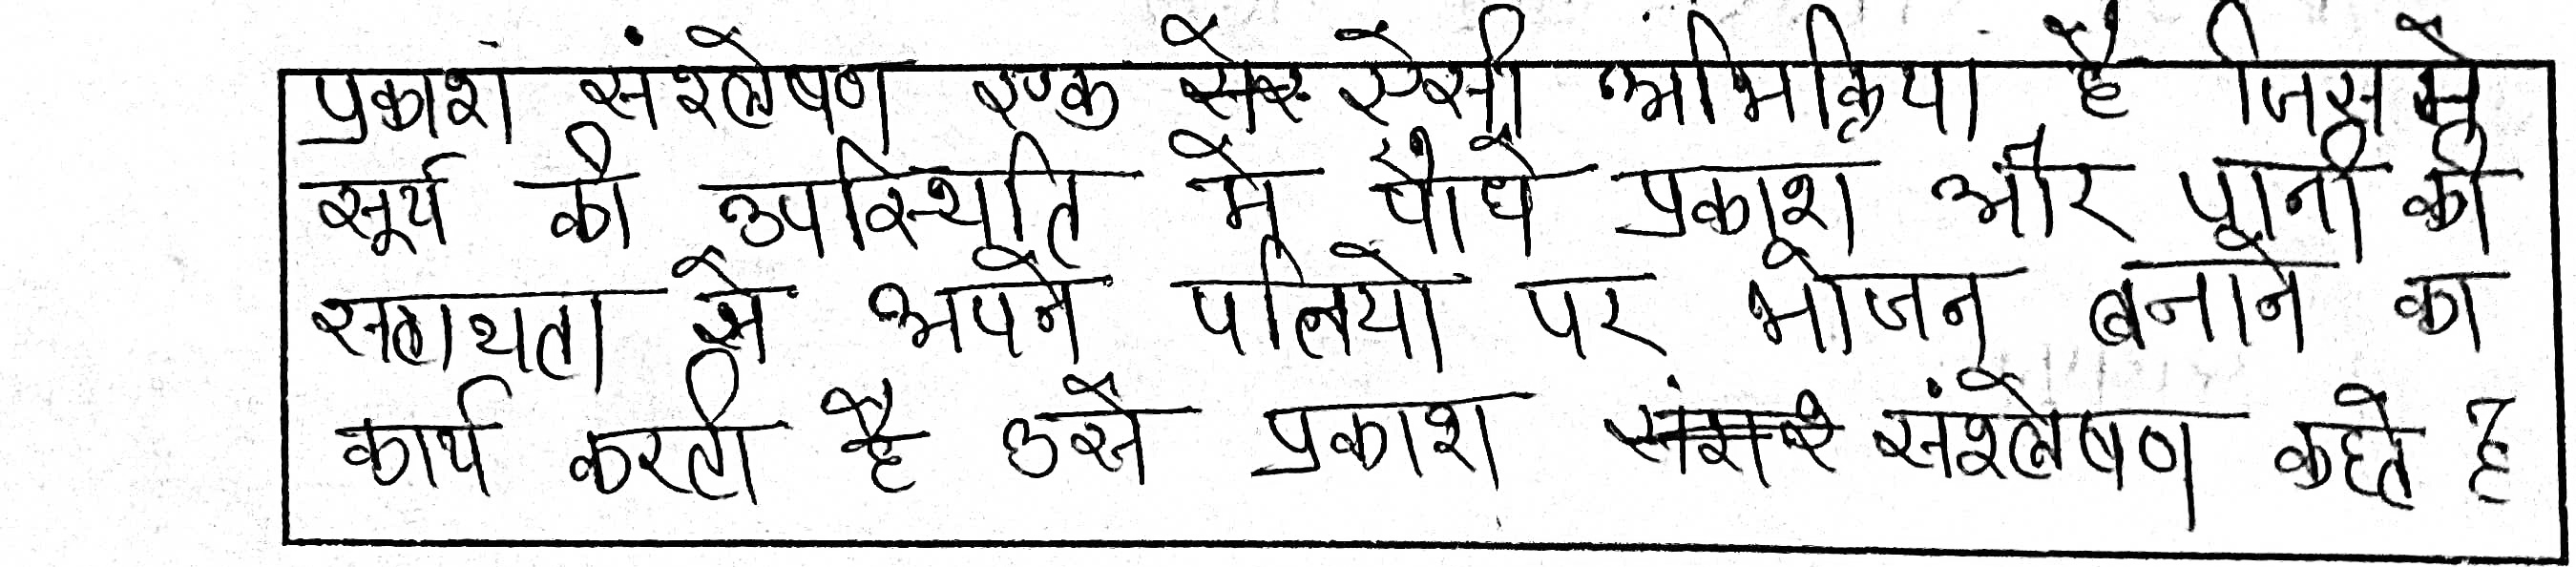 प्रकाश संश्लेषण एक ऐसी अभिक्रिया है जिसमे
सूर्य की उपस्थिति मे पौधे प्रकाश और पानी की
सहायता से अपने पत्तियो पर भोजन बनाने का
कार्य करती है उसे प्रकाश संश्लेषण कहते है